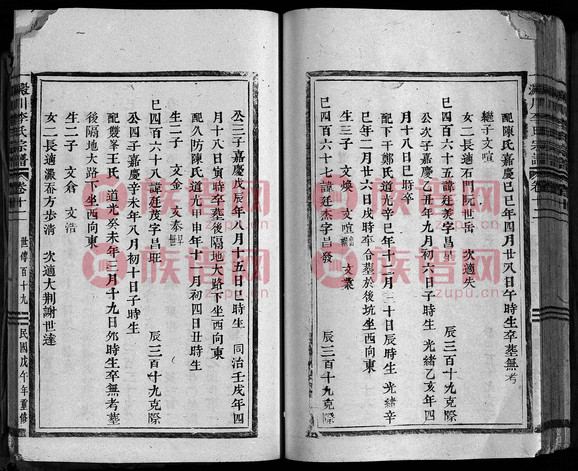 巖川李氏宗譜 卷十二
配陳氏嘉慶己巳年四月廿八日午時生卒墓無考
繼子文喧
女二長適石門阮世岳 次適失
巳四百六十五諱廷羙字昌 辰三百十九克際
公次子嘉慶乙丑年九月初六日子時生 光緒乙亥年四
月十八日巳時卒
配下干鄭氏道光辛巳年十二月二十日辰時生 光緒辛
巳年二月廿六日戌時卒合墓於後坑坐西向東
生三子 文煥 文喧 文業
巳四百六十七諱廷杰字昌發 辰三百十九克際
公三子嘉慶戊辰年八月十五日巳時生 同治壬戌年四
月十八日寅時卒墓後隔地大路下坐西向東
配久防陳氏道光甲申年十二月初四日丑時生
生二子 文金 文泰
巳四百六十八諱廷茂字昌旺 辰三百十九克際
公四子嘉慶辛未年八月初十日子時生
配雙峯王氏道光癸未年二月十九日夘時生卒無考墓
後隔地大路下坐西向東
生二子 文倉 文浩
女二長適嚴春方步清 次適大荆謝世達
巖川李氏宗譜 卷十二 世傳百十九 民國戊午年重修
族谱网
zupu.cn
族谱网
zupu.cn